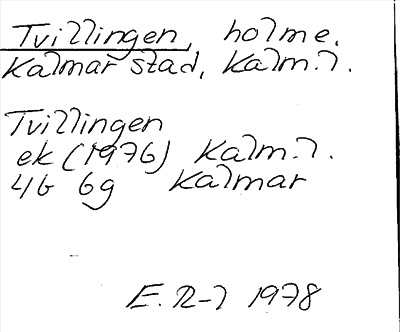 Tvillingen, holme.
Kalmar stad, Kalm.l.
Tvillingen
ek (1976) Kalm.l.
4G 6g Kalmar
E.R-l 1978